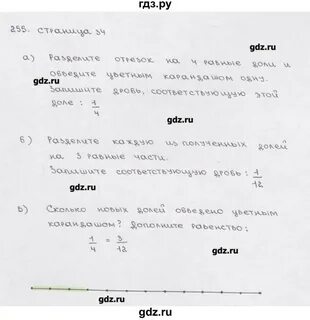 гдз.ру
255. страница 54
а) Разделите отрезок на 4 равные доли и
обведите цветным карандашом одну.
gdz.ru
gdz.ru
Запишите дробь, соответствующую этой
доле: 1/4
gdz.ru
б) Разделите каждую из полученных долей
на 3 равные части.
gdz.ru
Запишите соответствующую дробь: 1/12
gdz.ru
в) Сколько новых долей обведено цветным
карандашом? Дополните равенство:
gdz.ru
1/4 = 3/12
gdz.ru
gdz.ru
gdz.ru